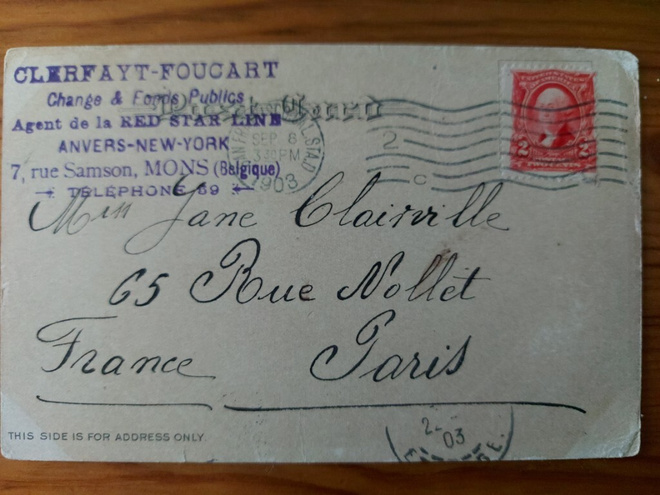 CLERFAYT-FOUCART
Change & Fonds Publics
Agent de la RED STAR LINE
ANVERS-NEW-YORK
7, rue Samson, MONS (Belgique)
TÉLÉPHONE 59
Post Card
STA.D
SEP 8
PM
1903
2
C
2 2
Jane Clairville
65 Rue Nollet
France Paris
THIS SIDE IS FOR ADDRESS ONLY
2-
03
E.